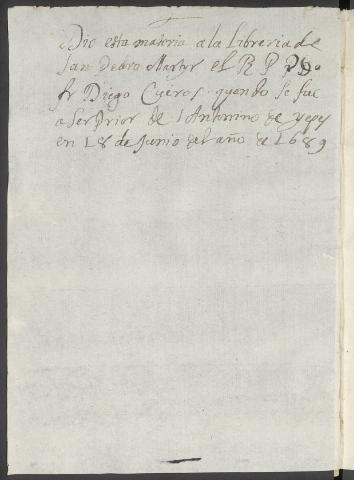 Dio esta materia a la Libreria de
San Pedro Martyr el R P Po
fr Diego Cueros quando se fue
a ser Prior de S Antonino de Yepes
en 18 de Junio del año de 1689